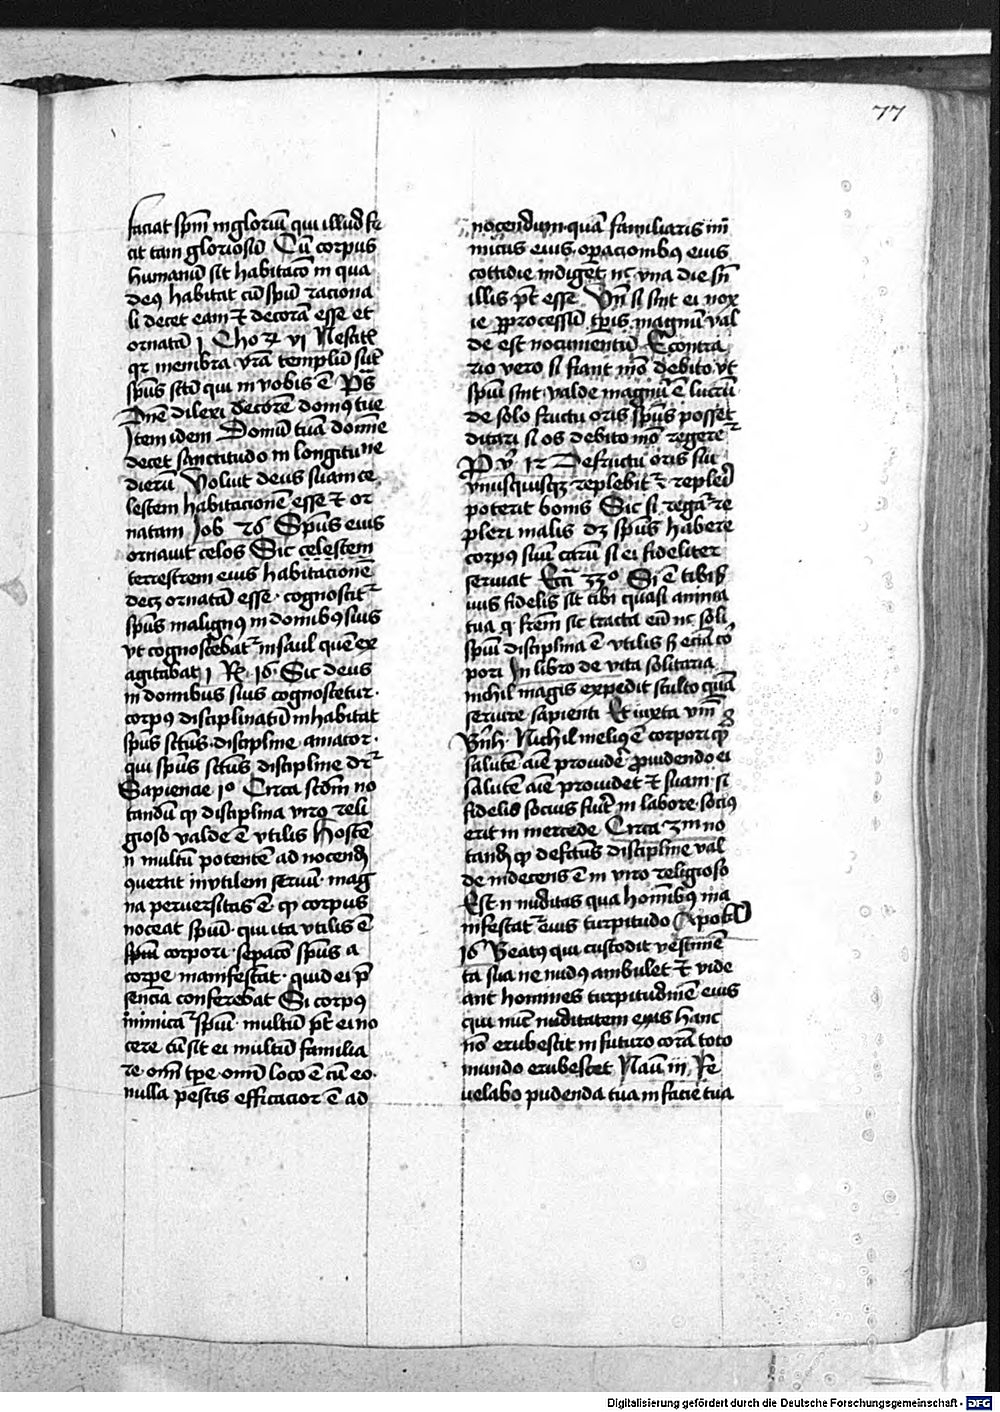 77
faciat spm̄ ingloriū qui illud fe
cit tam gloriosū Cū corpus
humanū sit habitaco in qua
deꝯ habitat cū spū raciona
li decet eam et decorā esse et
ornatā 1 Chor vi Nescit
qr membra vrā templū sūt
spūs scti qui in vobis ē Ps
Dne dilexi decorē domꝯ tue
Item idem Domū tuā domine
decet sanctitudo in longitudine
dierū Voluit deus suam ce
lestem habitacionē esse et or
natam Job 26 Spūs eius
ornavit celos Sic celestem
terrestrem eius habitacionē
decꝫ ornatā esse · cognoscit
spūs malignꝯ in domibꝯ suis
vt cognoscebat in saul quē ex
agitabat 1 R 16 · Sic deus
in domibus suis cognoscetur ·
corpꝯ disciplinatū inhabitat
spūs sctūs · discipline amator ·
qui spūs sctūs discipline dr
Sapiencie 1o Circa scdm no
tandū ꝙ disciplina viro reli
gioso valde ē vtilis Hostē
n multū potentē ad nocend
ꝯvertit invtilem servū · mag
na perversitas ē · ꝙ corpus
noceat spūi · qui ita vtilis ē
spūi corpori · sepaco spūs a
corpe manifestat · quid ei p
sencia conferebat Si corpꝯ
inimica spūi · multū pt ei no
cere cū sit ei multū familia
re omī tpe · omī loco ē cū eo ·
nulla pestis efficacior ē ad
nocendum quā familiaris ini
micus eius opacionibꝯ eius
cottidie indiget nc vna die sn
illis pt esse Vn si sint ei nox
ie p processū tpis magnū val
de est nocumentū Econtra
rio vero si fiant mo debito vt
spūi sint · valde magnū ē lucrū
de solo fructu oris spūs posset
ditari si os debito mo regeret
Pv 12 De fructu oris sui
vnusquisqꝫ replebit et repleri
poterit bonis Sic si regat re
pleri malis dꝫ spūs habere
corpꝯ suū carū si ei fideliter
serviat Ecci 33o Si ē tibi
vus fidelis sit tibi quasi anima
tua q frem sic tracta eū nc soli
spūi disciplina ē vtilis sꝫ eciā cor
pori In libro de vita solitaria
nichil magis expedit stulto quā
servire sapienti Et iuxta vm
Bnh · Nichil meliꝯ ē corpori ꝙ
salutē aie providē providendo ei
salutē aie providet et suam · si
fidelis socius fuit in labore · sociꝯ
erit in mercede Circa 3m no
tand ꝙ defctūs discipline val
de indecens ē in viro religioso
Est n nuditas qua hominibꝯ ma
nifestat eius turpitudo Apok
16 Beatꝯ qui custodit vestimē
ta sua ne nudꝯ ambulet et vide
ant homines turpitudinē eius
qui nūc nuditatem eius hanc
nō erubescit in futuro corā toto
mundo erubescet Naū iii Re
velabo pudenda tua in facie tua
Digitalisierung gefördert durch die Deutsche Forschungsgemeinschaft - DFG